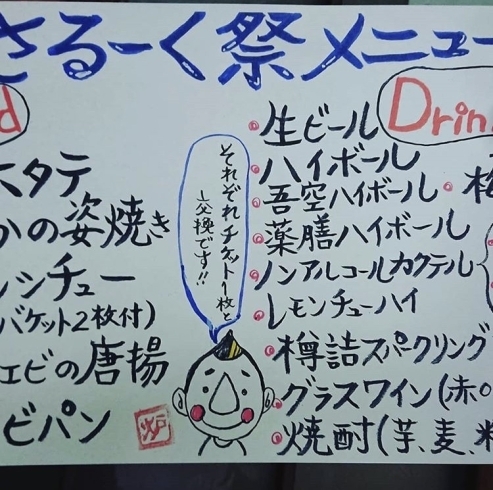 さるーく祭メニュー
d
タテ
かの姿焼き
シチュー
バケット2枚付)
エビの唐揚
ビパン
炉
それぞれチケット1枚と
交換です!!
Drin
生ビール
ハイボール
吾空ハイボール
薬膳ハイボール
ノンアルコールカクテル
レモンチューハイ
樽詰スパークリング
グラスワイン(赤
焼酎(芋、麦、